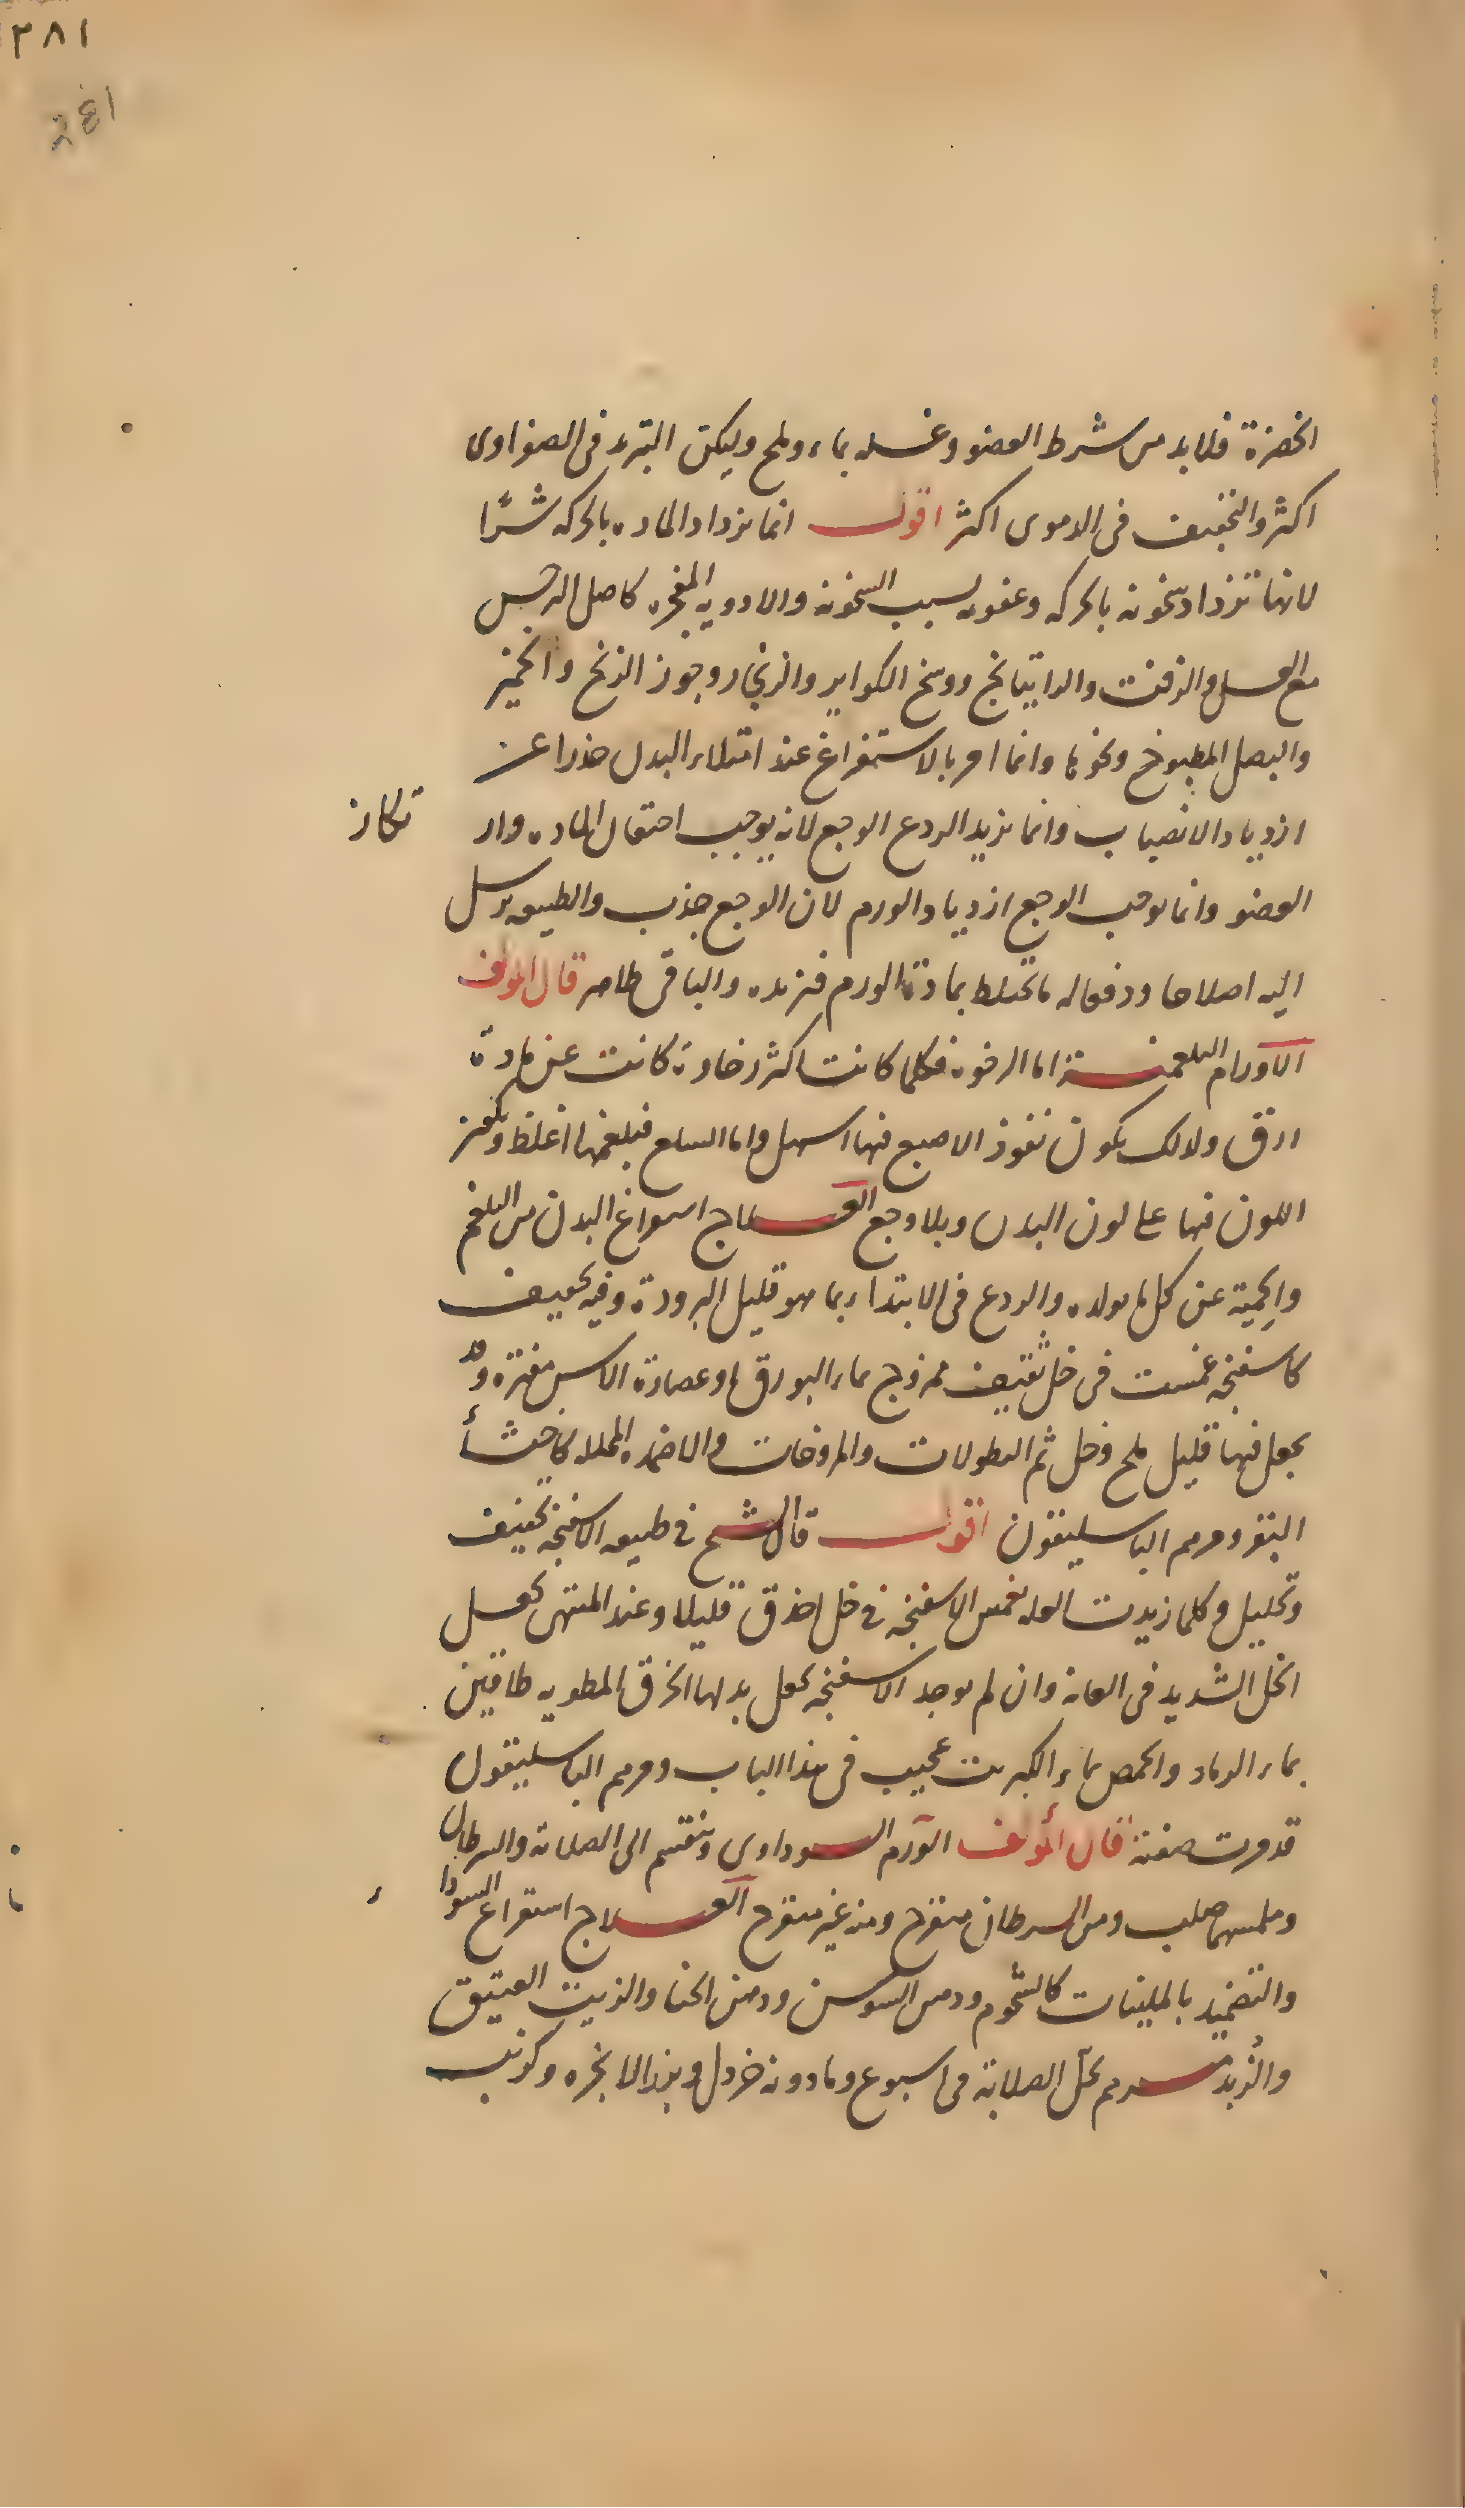 ٢٨١
281
الخضرة فلابد من شرط العضو وغسله بماء وملح وليكن التبريد فى الصفراوى
اكثر والتجفيف فى الدموى اكثر اقول انما يزداد المادة بالحركه شرًا
لانها تزداد سخونة بالحركه وعفونه لسبب السخونة والادوية المفجره كاصل النرجس
مع العسل والزفت والراتيانج ووسخ الكواير والزنجار وجوز الزنخ والخمير
والبصل المطبوخ ونحوها وانما امر بالاستفراغ عند امتلاء البدن حذرا عن
ازدياد الانصباب وانما يزيد الردع الوجع لانه يوجب احتقان المادة وار تكاز
العضو وانما يوجب الوجع ازدياد الورم لان الوجع جذب والطبيعه ترسل
اليه اصلاحا ودفعا له ما تختلط بمادة الورم فتزيده والباقى ظاهر قال المؤلف
الاورام البلغمية اما الرخوه فكلما كانت اكثر رخاوة كانت عن مادة
ارق ولذلك يكون نفوذ الاصبع فيها اسهل واما السلع فبلغمها اغلظ ويكون
اللون فيها على لون البدن وبلا وجع العلاج استفراغ البدن من البلغم
والحِمية عن كل ما يولده والردع فى الابتداء بما هو قليل البرودة وفيه تجفيف
كاسفنجه غمست فى خل ثقيف ممزوج بماء البورق او عصارة الاس مفترة وقد
يجعل فيها قليل ملح وخل ثم النطولات والمروخات والاضمده المحللة كاخثأ
البقر ومرهم الباسليقون اقول قال الشيخ فى طبيعه الاسفنجه تجفيف
وتحليل وكلما زيدت العله تغمس الاسفنجه فى خل احذق قليلا وعند المنتهى يجعل
الخل الشديد فى الغاية وان لم يوجد الاسفنجه يجعل بدلها الخرق المطويه طاقين
بماء الرماد والحمص بماء الكبريت عجيب فى هذا الباب ومرهم الباسليقون
قد مرت صفته قال المؤلف الورم السوداوى وينقسم الى الصلابة والسرطان
وملمسهما صلب ومن السرطان متقرح ومنه غير متقرح العلاج استفراغ السوداء
والتضميد بالملينات كالشحوم ودهن السوسن ودهن الحنا والزيت العتيق
والزبد مرهم يحل الصلابة فى اسبوع وماد ونه خردل وبزر الانجره وكبريت